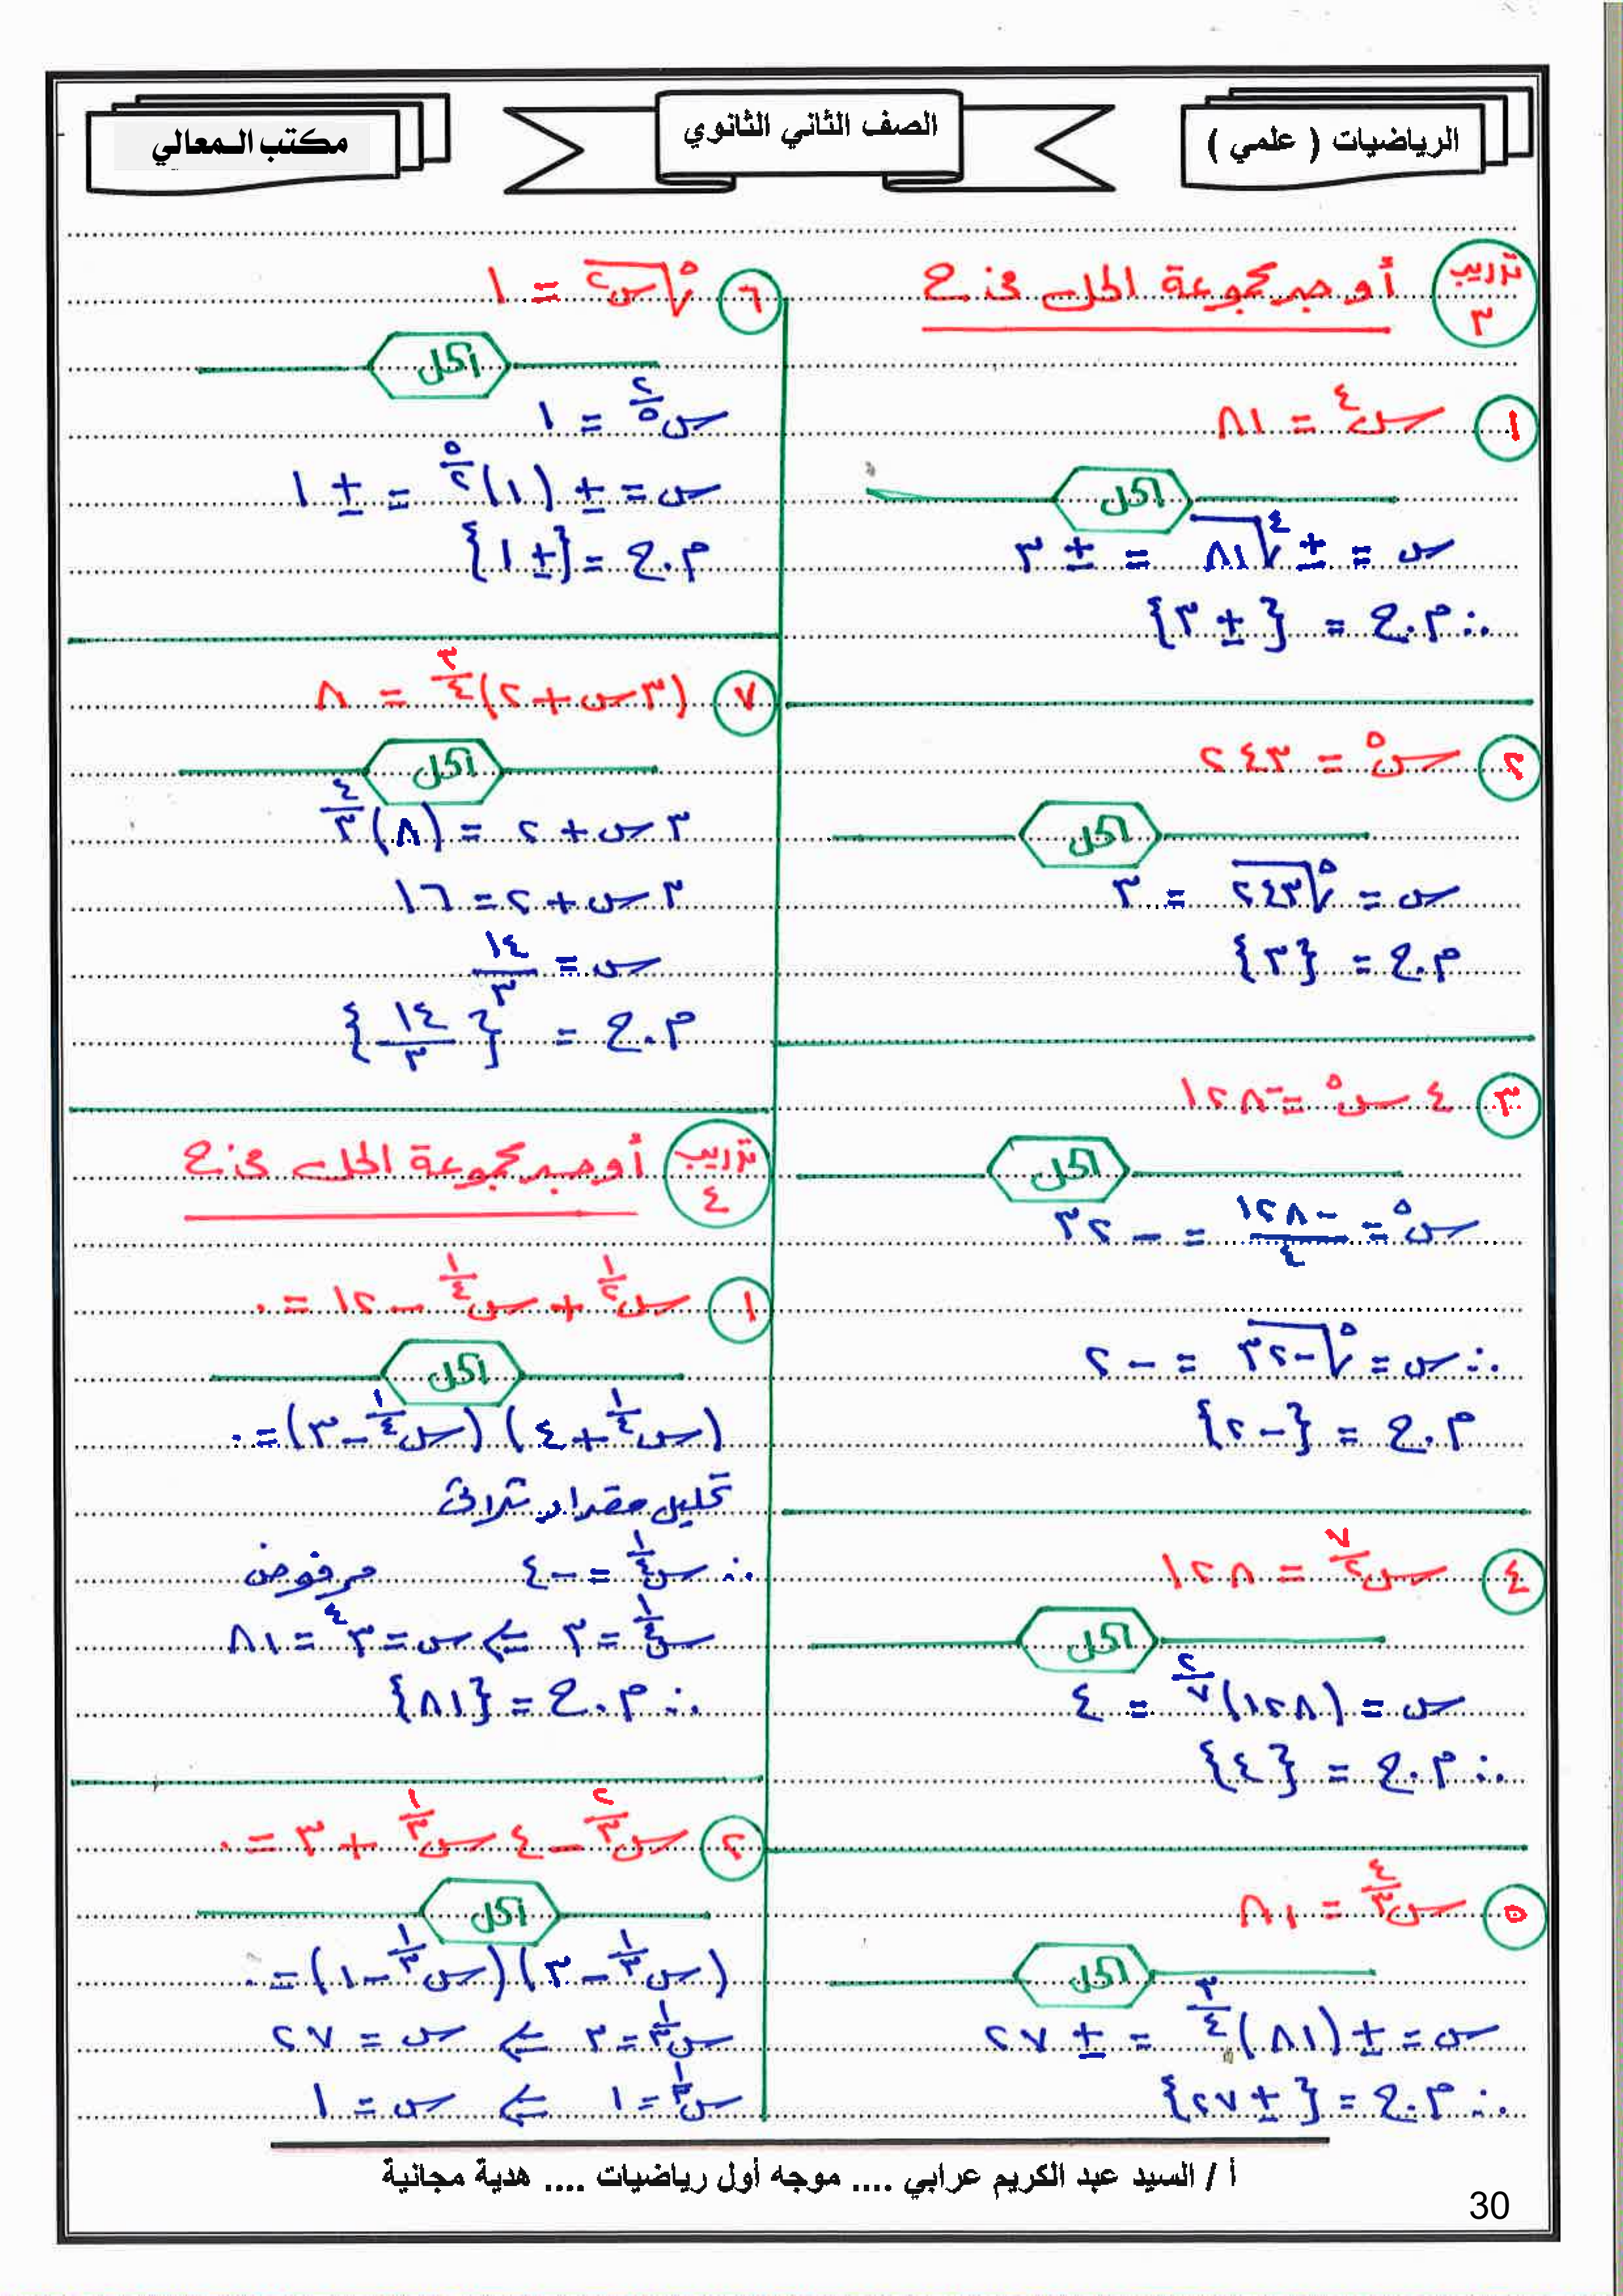 الرياضيات ( علمي )
الصف الثاني الثانوي
مكتب المعالي
تدريب ٣
أوجد مجموعة الحل في ح
١ س^٤ = ٨١
الحل
س = ± ∜٨١ = ± ٣
∴ م.ح = {± ٣}
٢ س^٥ = ٢٤٣
الحل
س = ⁵√٢٤٣ = ٣
م.ح = {٣}
٣ ٤ س^٥ = -١٢٨
الحل
س^٥ = -١٢٨/٤ = -٣٢
∴ س = ⁵√-٣٢ = -٢
م.ح = {-٢}
٤ س^(٧/٢) = ١٢٨
الحل
س = (١٢٨)^(٢/٧) = ٤
∴ م.ح = {٤}
٥ س^(٤/٣) = ٨١
الحل
س = ± (٨١)^(٣/٤) = ± ٢٧
∴ م.ح = {± ٢٧}
٦ ⁵√س^٢ = ١
الحل
س^(٢/٥) = ١
س = ± (١)^(٥/٢) = ± ١
م.ح = {± ١}
٧ (٣س + ٢)^(٣/٤) = ٨
الحل
٣س + ٢ = (٨)^(٤/٣)
٣س + ٢ = ١٦
س = ١٤/٣
م.ح = {١٤/٣}
تدريب ٤
أوجد مجموعة الحل في ح
١ س^(١/٢) + س^(١/٤) - ١٢ = ٠
الحل
(س^(١/٤) + ٤) (س^(١/٤) - ٣) = ٠
تحليل مقدار ثلاثى
∴ س^(١/٤) = -٤ مرفوض
س^(١/٤) = ٣ ⇐ س = ٣^٤ = ٨١
∴ م.ح = {٨١}
٢ س^(٢/٣) - ٤ س^(١/٣) + ٣ = ٠
الحل
(س^(١/٣) - ٣) (س^(١/٣) - ١) = ٠
س^(١/٣) = ٣ ⇐ س = ٢٧
س^(١/٣) = ١ ⇐ س = ١
أ / السيد عبد الكريم عرابي .... موجه أول رياضيات .... هدية مجانية
30